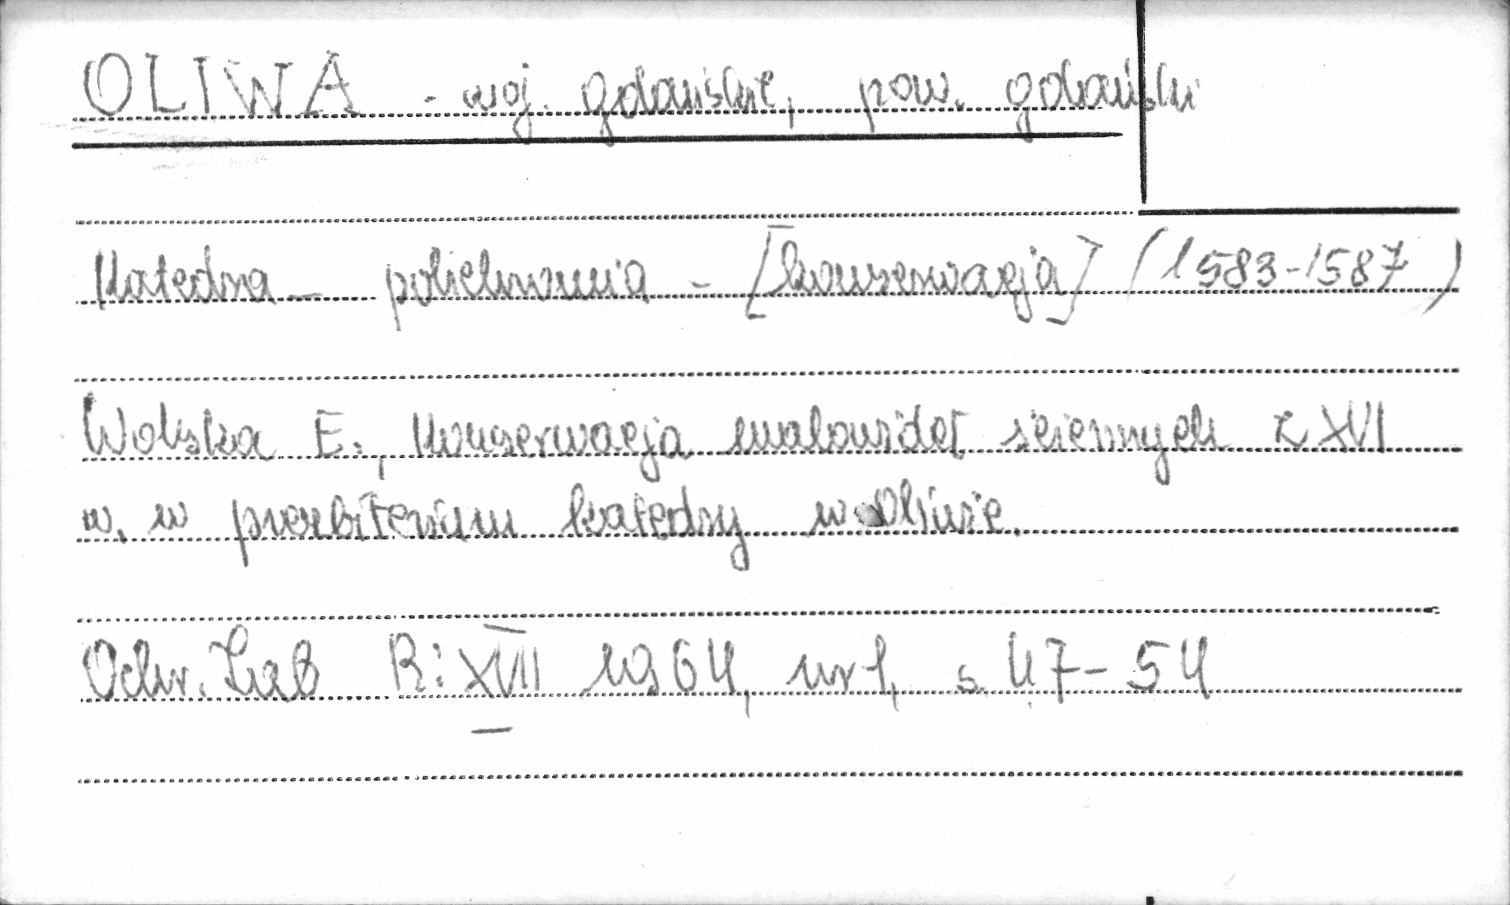 OLIWA - woj. gdańskie, pow. gdański
Katedra - polichromia - [konserwacja] (1583-1587)
Wolska E., Konserwacja malowideł ściennych z XVI
w. w prezbiterium katedry w Oliwie.
Ochr. Zab R: XVII 1964, nr 1, s. 47-54